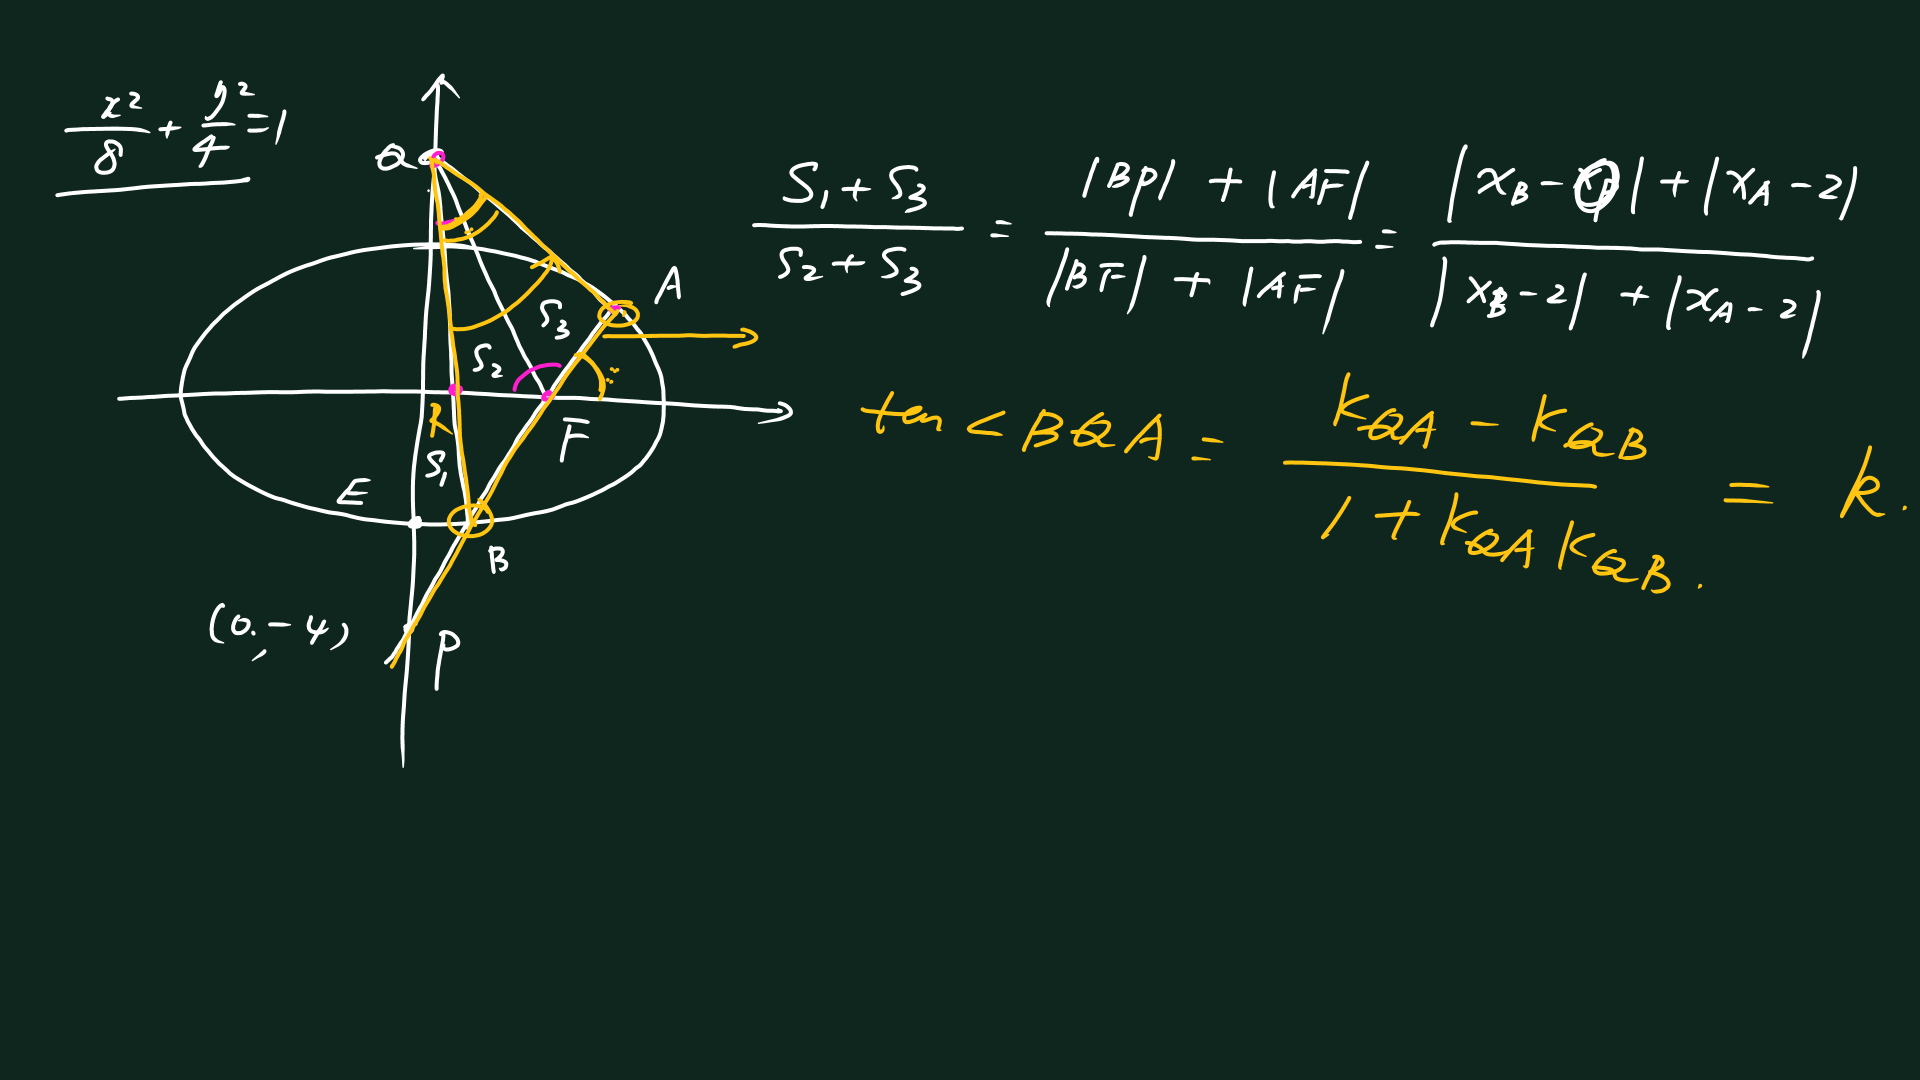 x²/8 + y²/4 = 1
Q
A
S₃
S₂
R
F
S₁
E
B
(0, -4)
P
(S₁ + S₃)/(S₂ + S₃) = (|BP| + |AF|)/(|BF| + |AF|) = (|x_B - 0| + |x_A - 2|)/(|x_B - 2| + |x_A - 2|)
tan < BQA = (k_QA - k_QB)/(1 + k_QA k_QB) = k.